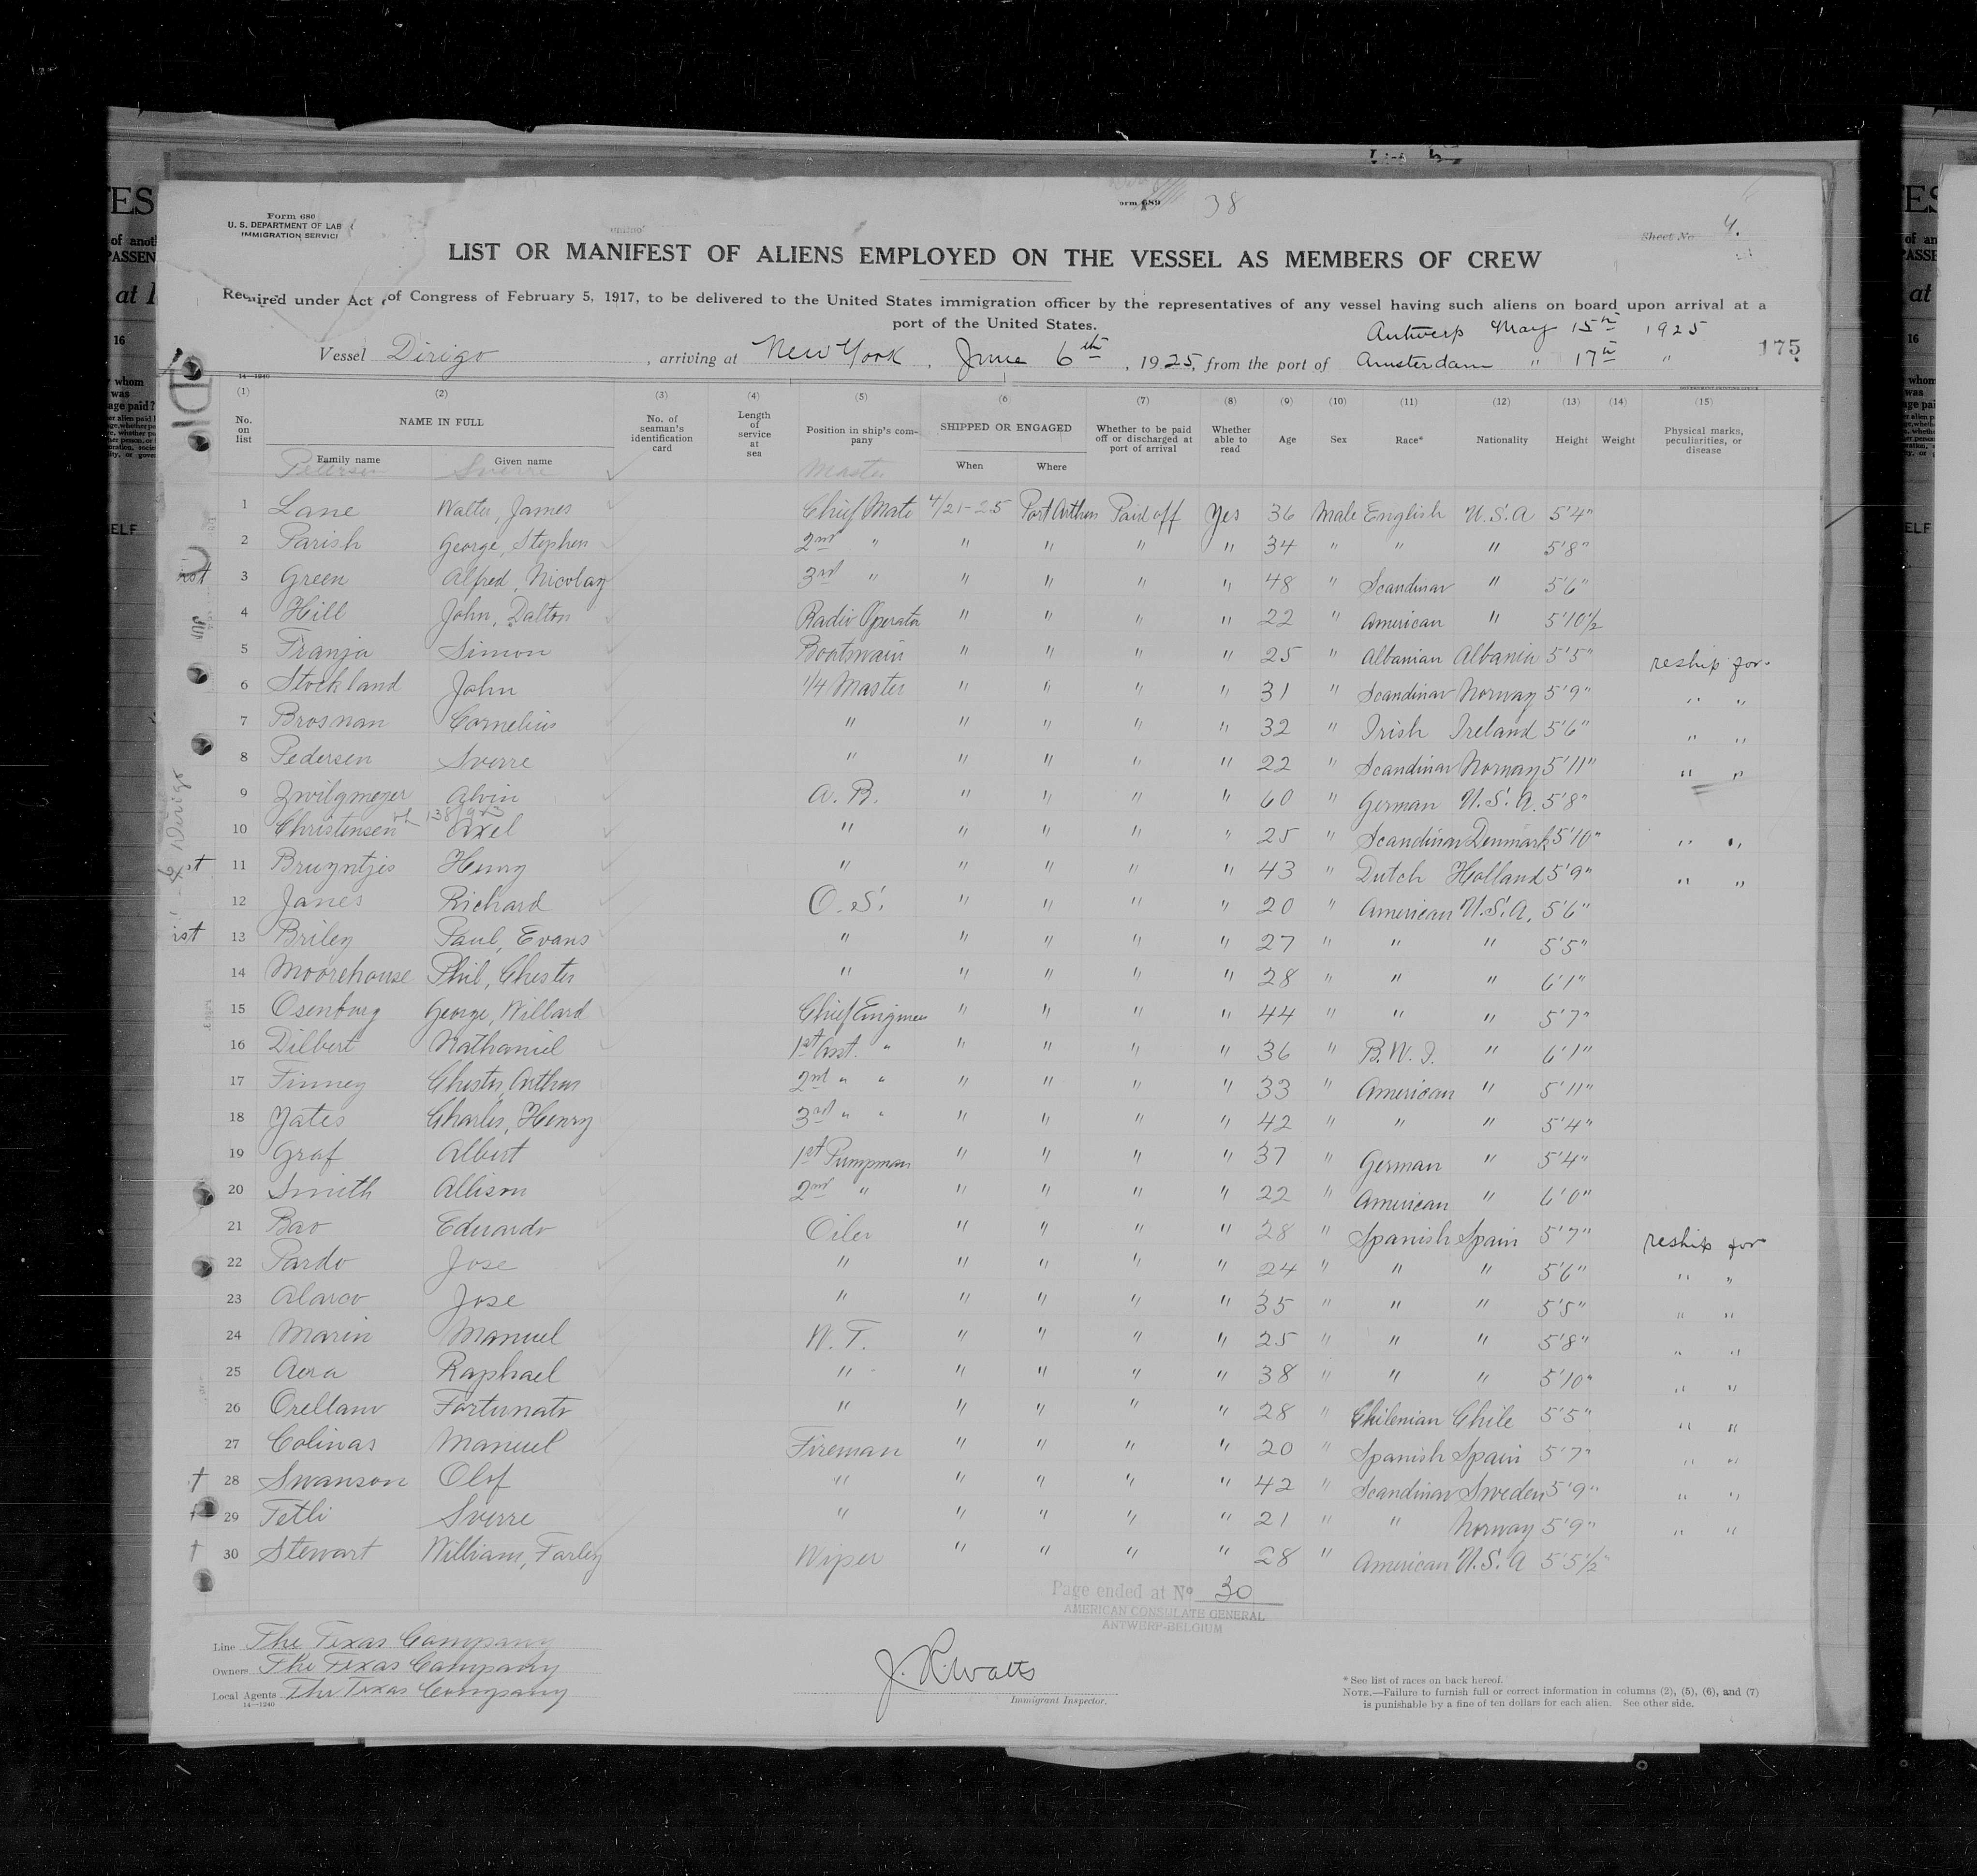 Form 689 38
Form 680
U. S. DEPARTMENT OF LAB
IMMIGRATION SERVICE
Sheet No. 4.
LIST OR MANIFEST OF ALIENS EMPLOYED ON THE VESSEL AS MEMBERS OF CREW
Required under Act of Congress of February 5, 1917, to be delivered to the United States immigration officer by the representatives of any vessel having such aliens on board upon arrival at a
port of the United States.
Antwerp May 15th 1925
Vessel Dirigo, arriving at New York, June 6th, 1925, from the port of Amsterdam " 17th "
175
14—1240
(1) (2) (3) (4) (5) (6) (7) (8) (9) (10) (11) (12) (13) (14) (15)
No. on list NAME IN FULL No. of seaman's identification card Length of service at sea Position in ship's company SHIPPED OR ENGAGED Whether to be paid off or discharged at port of arrival Whether able to read Age Sex Race* Nationality Height Weight Physical marks, peculiarities, or disease
Family name Given name When Where
Petersen Sverre Master
1 Lane Walter, James Chief Mate 4/21-25 Port Arthur Paid off Yes 36 Male English U.S.A 5'4"
2 Parish George, Stephen 2nd " " " " " 34 " " " 5'8"
3 Green Alfred, Nicolay 3rd " " " " " 48 " Scandinav " 5'6"
4 Hill John, Dalton Radio Operator " " " " 22 " American " 5'10½
5 Franja Simon Boatswain " " " " 25 " Albanian Albania 5'5" reship for
6 Stockland John 1/4 Master " " " " 31 " Scandinav Norway 5'9" " "
7 Brosnan Cornelius " " " " " 32 " Irish Ireland 5'6" " "
8 Pedersen Sverre " " " " " 22 " Scandinav Norway 5'11" " "
9 Zwilgmeyer Alvin A. B. " " " " 60 " German U.S.A. 5'8"
10 Christensen Axel " " " " " 25 " Scandinav Denmark 5'10" " "
11 Bruyntjis Henry " " " " " 43 " Dutch Holland 5'9" " "
12 Janes Richard O. S. " " " " 20 " American U.S.A. 5'6"
13 Briley Paul, Evans " " " " " 27 " " " 5'5"
14 Moorehouse Phil, Chester " " " " " 28 " " " 6'1"
15 Osenburg George, Willard Chief Engineer " " " " 44 " " " 5'7"
16 Dilbert Nathaniel 1st Asst. " " " " " 36 " B.W.I. " 6'1"
17 Finney Chester, Arthur 2nd " " " " " " 33 " American " 5'11"
18 Yates Charles, Henry 3rd " " " " " " 42 " " " 5'4"
19 Graf Albert 1st Pumpman " " " " 37 " German " 5'4"
20 Smith Allison 2nd " " " " " 22 " American " 6'0"
21 Bao Eduardo Oiler " " " " 28 " Spanish Spain 5'7" reship for
22 Pardo Jose " " " " " 24 " " " 5'6" " "
23 Alarco Jose " " " " " 35 " " " 5'5" " "
24 Marin Manuel W. T. " " " " 25 " " " 5'8" " "
25 Aera Raphael " " " " " 38 " " " 5'10" " "
26 Orellano Fortunato " " " " " 28 " Chilenian Chile 5'5" " "
27 Colinas Manuel Fireman " " " " 20 " Spanish Spain 5'7" " "
28 Swanson Olof " " " " " 42 " Scandinav Sweden 5'9" " "
29 Tetli Sverre " " " " " 21 " " Norway 5'9" " "
30 Stewart William, Farley Wiper " " " " 28 " American U.S.A 5'5½"
Page ended at No 30
AMERICAN CONSULATE GENERAL
ANTWERP-BELGIUM
Line The Texas Company
Owners The Texas Company
Local Agents The Texas Company
14—1240
J. R. Watts
Immigrant Inspector.
* See list of races on back hereof.
NOTE.—Failure to furnish full or correct information in columns (2), (5), (6), and (7)
is punishable by a fine of ten dollars for each alien. See other side.